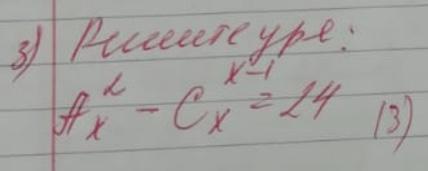 3) Решите уре:
A_x^2 - C_x^{x-1} = 24 (3)